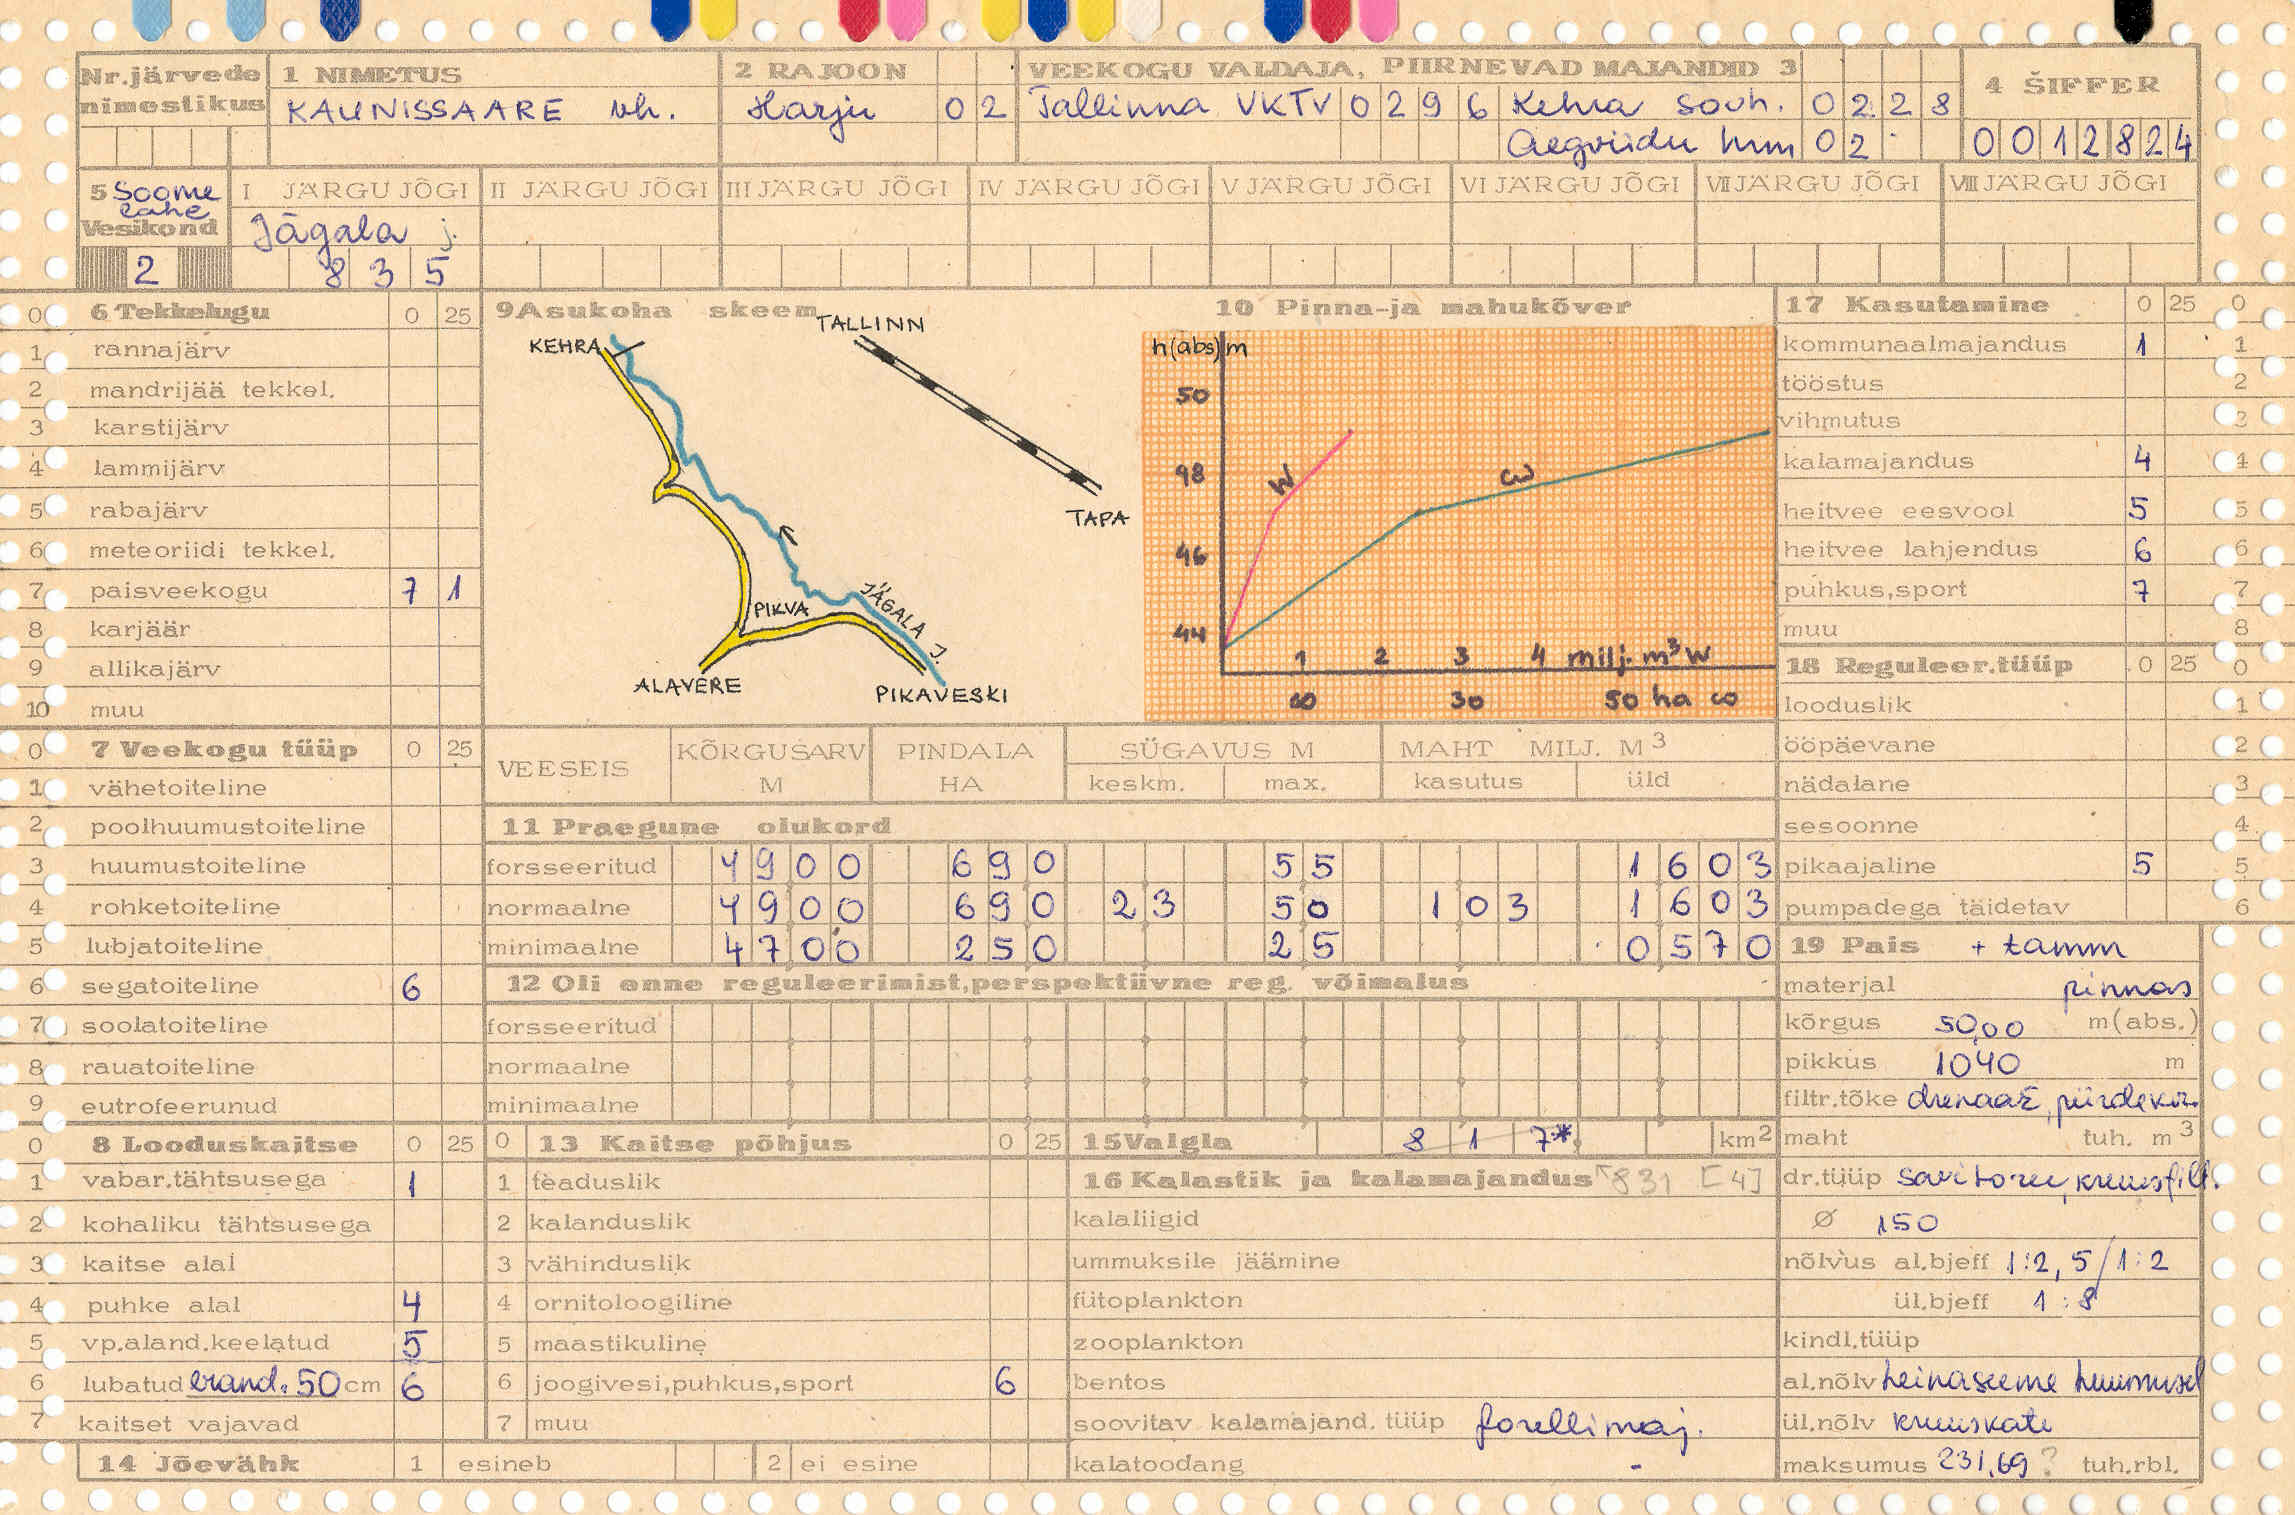 Nr.järvede nimestikus
1 NIMETUS
KAUNISSAARE vh.
2 RAJOON
Harju 0 2
VEEKOGU VALDAJA, PIIRNEVAD MAJANDID 3
Tallinna VKTV 0 2 9 6 Kehra sovh. 0 2 2 8
Aegviidu mm 0 2
4 ŠIFFER
0 0 1 2 8 2 4
5 Soome lahe
Vesikond
2
I JÄRGU JÕGI
Jägala j.
8 3 5
II JÄRGU JÕGI
III JÄRGU JÕGI
IV JÄRGU JÕGI
V JÄRGU JÕGI
VI JÄRGU JÕGI
VII JÄRGU JÕGI
VIII JÄRGU JÕGI
0 6 Tekkelugu 0 25
1 rannajärv
2 mandrijää tekkel.
3 karstijärv
4 lammijärv
5 rabajärv
6 meteoriidi tekkel.
7 paisveekogu 7 1
8 karjäär
9 allikajärv
10 muu
0 7 Veekogu tüüp 0 25
1 vähetoiteline
2 poolhuumustoiteline
3 huumustoiteline
4 rohketoiteline
5 lubjatoiteline
6 segatoiteline 6
7 soolatoiteline
8 rauatoiteline
9 eutrofeerunud
0 8 Looduskaitse 0 25
1 vabar.tähtsusega 1
2 kohaliku tähtsusega
3 kaitse alal
4 puhke alal 4
5 vp.aland.keelatud 5
6 lubatud erand. 50 cm 6
7 kaitset vajavad
14 Jõevähk 1 esineb 2 ei esine
9 Asukoha skeem
TALLINN
KEHRA
TAPA
JÄGALA J.
PIKVA
ALAVERE
PIKAVESKI
10 Pinna-ja mahukõver
h(abs)m
50
98
46
44
W
ω
1 2 3 4 milj. m³ W
10 30 50 ha ω
VEESEIS
KÕRGUSARV M
PINDALA HA
SÜGAVUS M
keskm. max.
MAHT MILJ. M3
kasutus üld
11 Praegune olukord
forsseeritud 4 9 0 0 6 9 0 5 5 1 6 0 3
normaalne 4 9 0 0 6 9 0 2 3 5 0 1 0 3 1 6 0 3
minimaalne 4 7 0 0 2 5 0 2 5 0 5 7 0
12 Oli enne reguleerimist,perspektiivne reg. võimalus
forsseeritud
normaalne
minimaalne
0 13 Kaitse põhjus 0 25
1 teaduslik
2 kalanduslik
3 vähinduslik
4 ornitoloogiline
5 maastikuline
6 joogivesi,puhkus,sport 6
7 muu
15 Valgla 8 1 7* km2
16 Kalastik ja kalamajandus 831 [4]
kalaliigid
ummuksile jäämine
fütoplankton
zooplankton
bentos
soovitav kalamajand. tüüp forellimaj.
kalatoodang -
17 Kasutamine 0 25 0
kommunaalmajandus 1 1
tööstus 2
vihmutus 3
kalamajandus 4 4
heitvee eesvool 5 5
heitvee lahjendus 6 6
puhkus,sport 7 7
muu 8
18 Reguleer.tüüp 0 25 0
looduslik 1
ööpäevane 2
nädalane 3
sesoonne 4
pikaajaline 5 5
pumpadega täidetav 6
19 Pais + tamm
materjal pinnas
kõrgus 50,00 m(abs.)
pikkus 1040 m
filtr.tõke drenaaž, piirdekr.
maht tuh. m3
dr.tüüp savitoru, kruusfilt.
Ø 150
nõlvus al.bjeff 1:2,5/1:2
ül.bjeff 1:8
kindl.tüüp
al.nõlv heinaseeme huumusel
ül.nõlv kruuskate
maksumus 231,69 ? tuh.rbl.